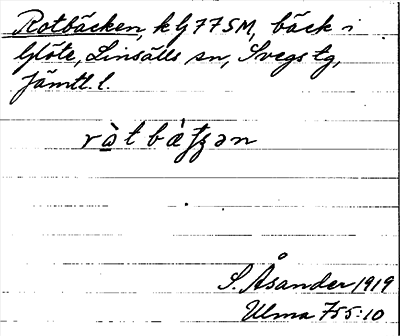 Rotbäcken, k G77SM, bäck i
Glöte, Linsälls sn, Svegs tg,
Jämtl. l.
S. Åsander 1919
Ulma 755:10